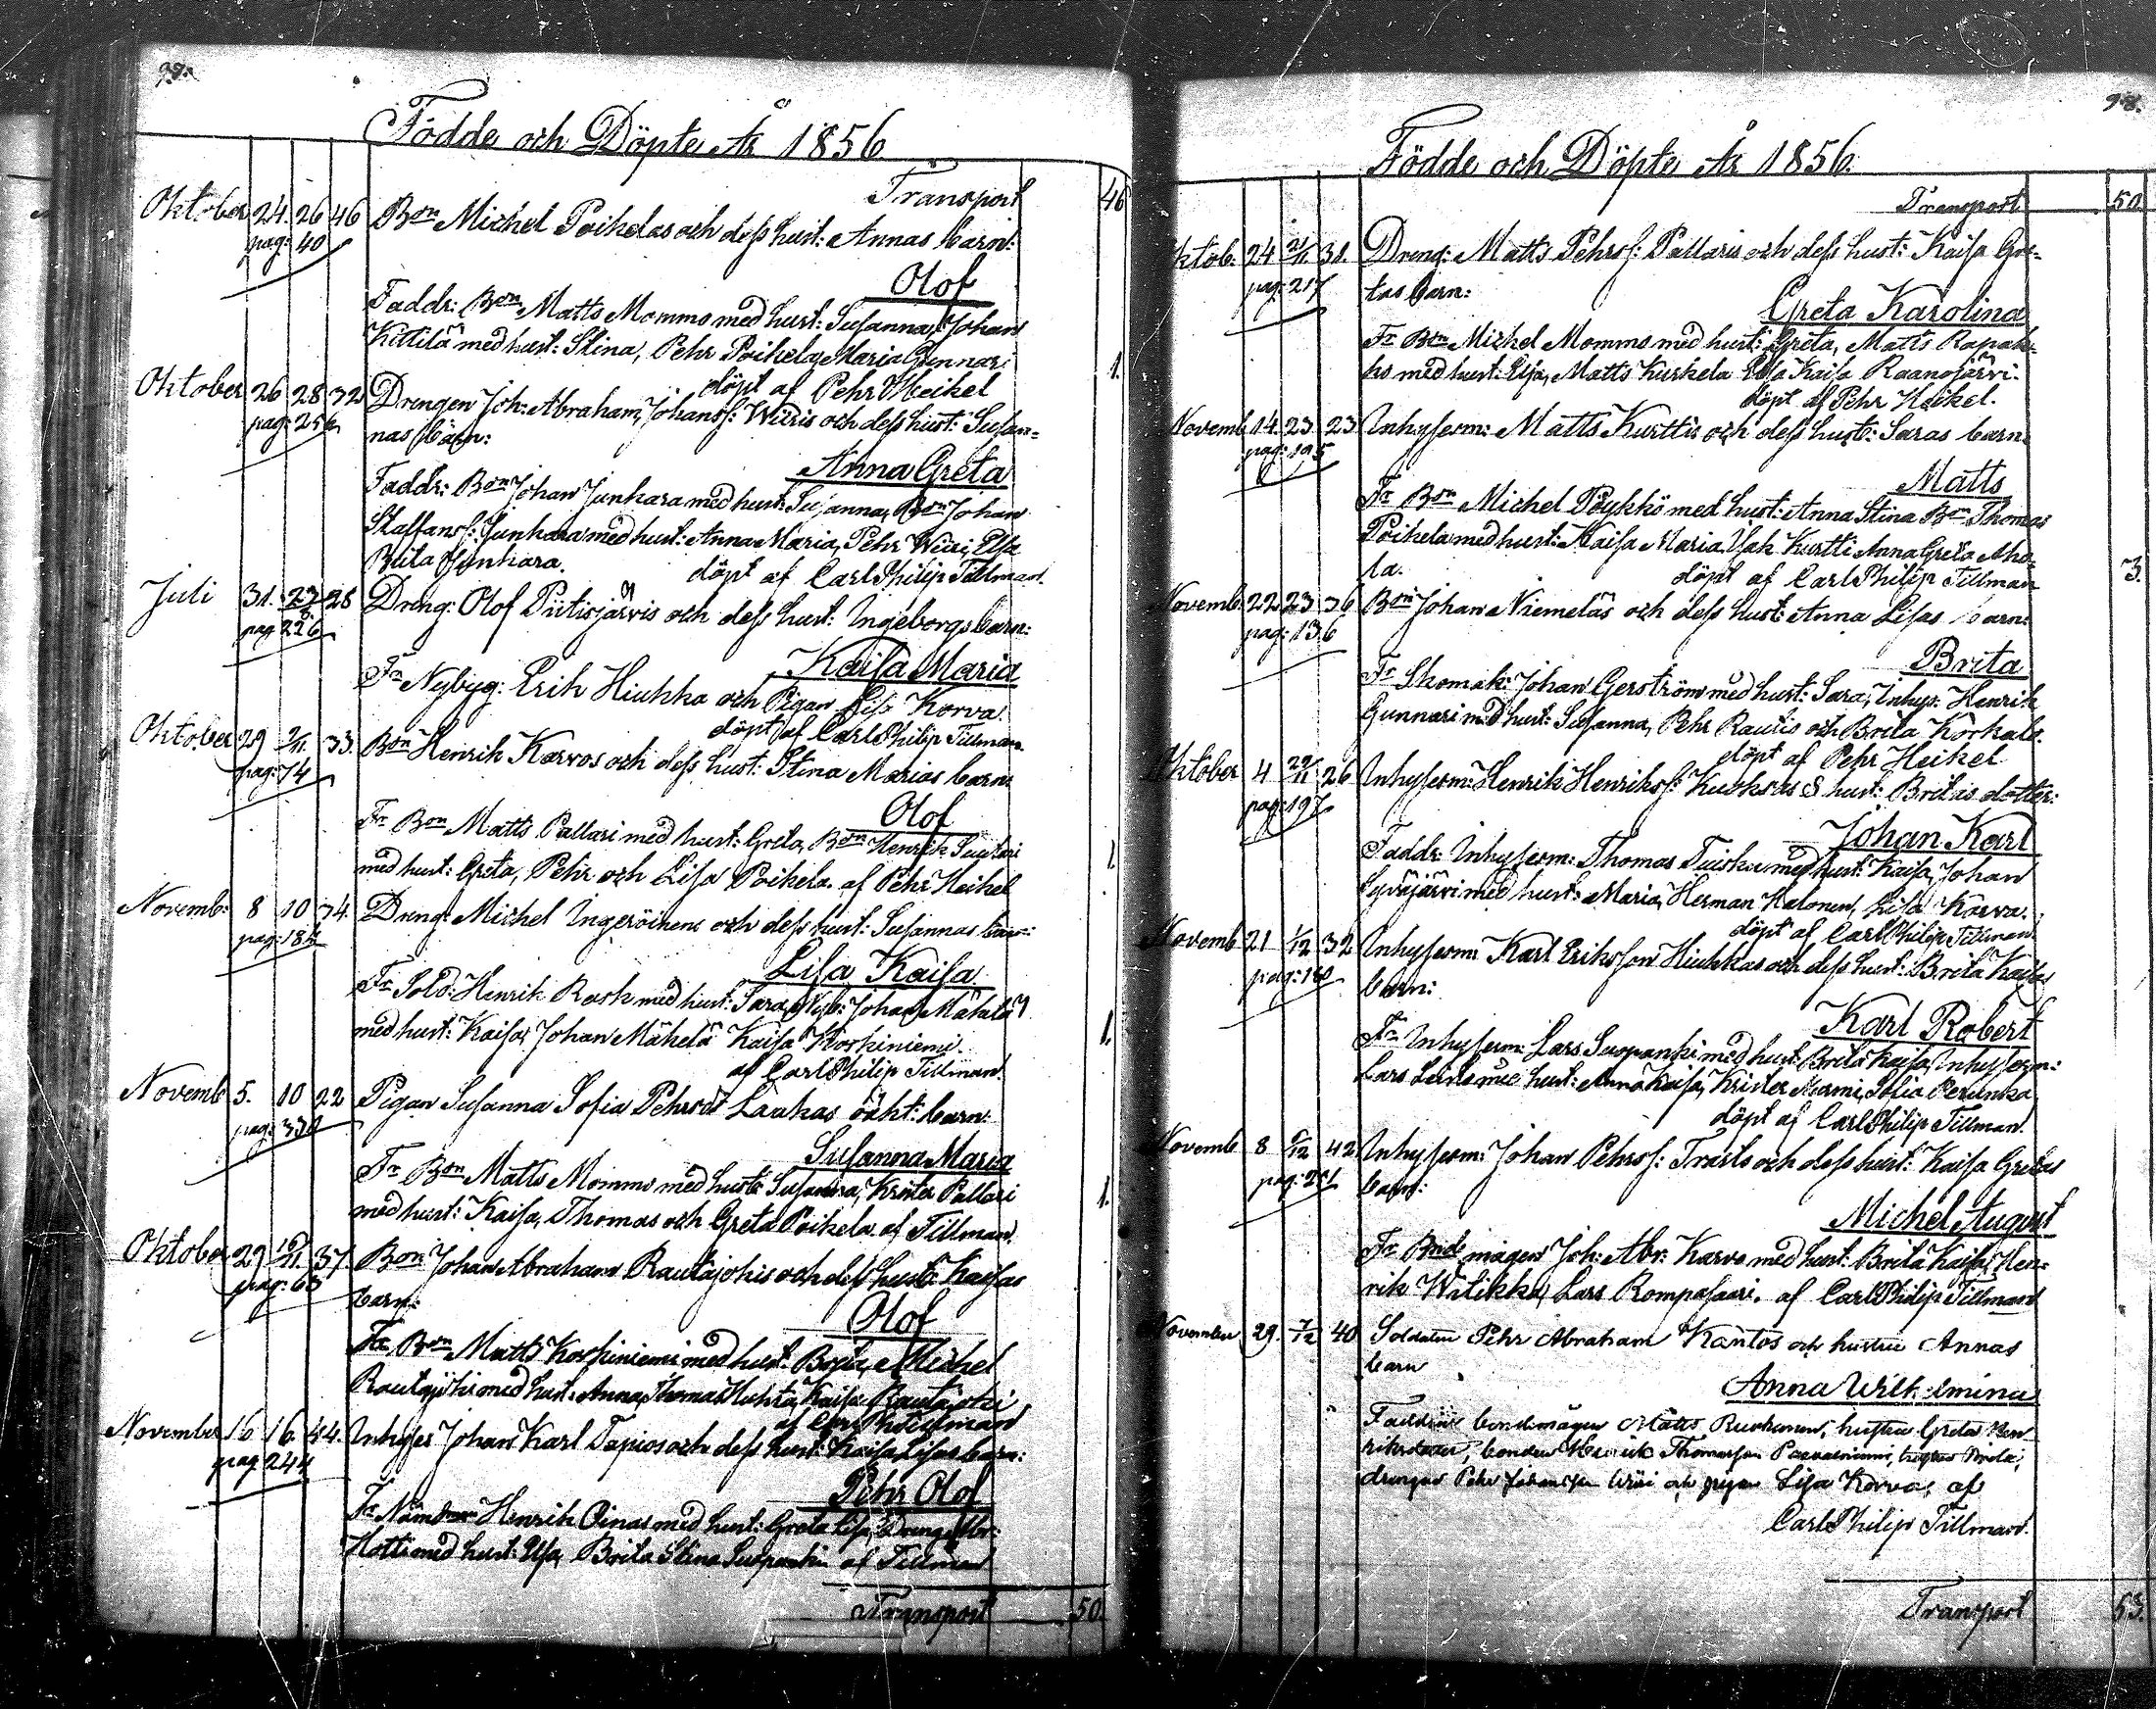 97.
Födde och Döpte År 1856
Transport 46
Oktober 24. 26 46 Bon Michel Poikelas och dess hust: Annas barn:
pag: 40
Olof
Faddr: Bon Matts Mommo med hust: Susanna, Johan
Kittilä med hust: Stina, Pehr Poikela, Maria Gunnari
1.
döpt af Pehr Heikel
Oktober 26 28 32 Drengen Joh: Abraham Johanss: Wiiris och dess hust: Susan=
pag: 256
nas barn:
Anna Greta
Faddr: Bon Johan Junkara med hust: Susanna, Bon Johan
Staffanss: Junkara med hust: Anna Maria, Pehr Wiiri, Elsa
Brita Junkara.
döpt af Carl Philip Tillman.
Juli 31. 28 Dreng: Olof Pietisjärvis och dess hust: Ingeborgs barn:
pag 226
Kaisa Maria
Fr Nybyg: Erik Hiukka och Pigan Lisa Korva.
döpt af Carl Philip Tillman
Oktober 29 2/11. 33. Bon Henrik Karvos och dess hust: Stina Marias barn.
pag: 74
Olof
Fr Bon Matts Pallari med hust: Greta, Bon Henrik Suutari
1.
med hust: Greta, Pehr och Lisa Poikela. af Pehr Heikel
Novemb: 8 10 34. Dreng: Michel Ingeröinens och dess hust: Susannas barn:
Lisa Kaisa
Fr Sold: Henrik Rask med hust: Sara, Nyb: Johan Mäkelä
med hust: Kaisa, Johan Mäkelä Kaisa Korkiniemi.
1.
af Carl Philip Tillman.
Novemb 5. 10 22 Pigan Susanna Sofia Pehrsdr Laukas oäkt: barn.
Susanna Maria
Fr Bon Matts Mommo med hust: Susanna, Krister Pallari
1.
med hust: Kaisa, Thomas och Greta Poikela. af Tillman.
Oktober 29 16/11. 37. Bon Johan Abraham Rautajokis och dess hust: Kaisas
pag: 63
barn:
Olof
Fr Bon Matts Korkiniemi med hust: Brita, Michel
Rautajoki med hust: Anna, Thomas Huhta, Kaisa Rautajoki
af Carl Ph Tillman
November 16 16. 44. Inhyses Johan Karl Tapios och dess hust: Kaisa Lisas barn:
pag 244
Pehr Olof
Henrik Oinas med hust: Greta Lisa, Dreng Abr:
Hotti med hust: Elsa, Brita Stina Suopanki af Tillman
Transport 50.
98.
Födde och Döpte År 1856.
Transport 50.
Oktob: 24 2/11. 31. Dreng: Matts Pehrss: Pallaris och dess hust: Kaisa Gre=
pag: 217
tas barn:
Greta Karolina
Fr Bon Michel Mommo med hust: Greta, Matts Rapak=
ko med hust: Elsa, Matts Kurkela Elsa Kaisa Raanojärvi.
döpt af Pehr Heikel.
Novemb 14. 23 23 Inhyserm: Matts Kurttis och dess hust: Saras barn.
pag: 195
Matts
Fr Bon Michel Pöykkö med hust: Anna Stina Bon Thomas
Poikela med hust: Kaisa Maria, Isak Kurtti Anna Greta Aho=
la.
3.
döpt af Carl Philip Tillman
Novemb. 22 23 36 Bon Johan Niemeläs och dess hust: Anna Lisas barn:
pag: 136
Brita
Fr Skomak: Johan Gerström med hust: Sara, Inhys: Henrik
Gunnari med hust: Susanna, Pehr Rautio och Brita Korkalo.
döpt af Pehr Heikel
Oktober 4 22/11 26 Inhyserm: Henrik Henrikss: Kuoksas & hust: Britas dotter:
pag: 197
Johan Karl
Faddr: Inhyserm: Thomas Tuisku med hust: Kaisa, Johan
Syväjärvi med hust: Maria, Herman Halonen, Lisa Korva.
döpt af Carl Philip Tillman
Novemb 21 1/12 32 Inhyserm: Karl Eriksson Hiukkas och dess hust: Brita Kaisas
pag: 180
barn:
Karl Robert
Fr Inhyserm: Lars Suopanki med hust: Brita Kaisa, Inhyserm:
Lars med hust: Anna Kaisa, Krister Niemi, Sofia Perunka
döpt af Carl Philip Tillman.
Novemb 8 6/12 42 Inhyserm: Johan Pehrss: Trasts och dess hust: Kaisa Gretas
barn:
Michel August
Fr Bondemågen Joh: Abr: Karvo med hust: Brita Kaisa, Hen=
rik Wilikka, Lars Rompasaari. af Carl Philip Tillman
November 29. 7/12 40 Soldaten Pehr Abraham Kantos och hustru Annas
barn
Anna Wilhelmina
Faddrar bondemågen Matts Ruokanen, hustru Greta Hen
riksdotter, bonden Henrik Thomasson Paavalniemi, hustru Brita,
drengen Pehr Johansson Wiiri och pigan Lisa Korva, af
Carl Philip Tillman.
Transport 53.